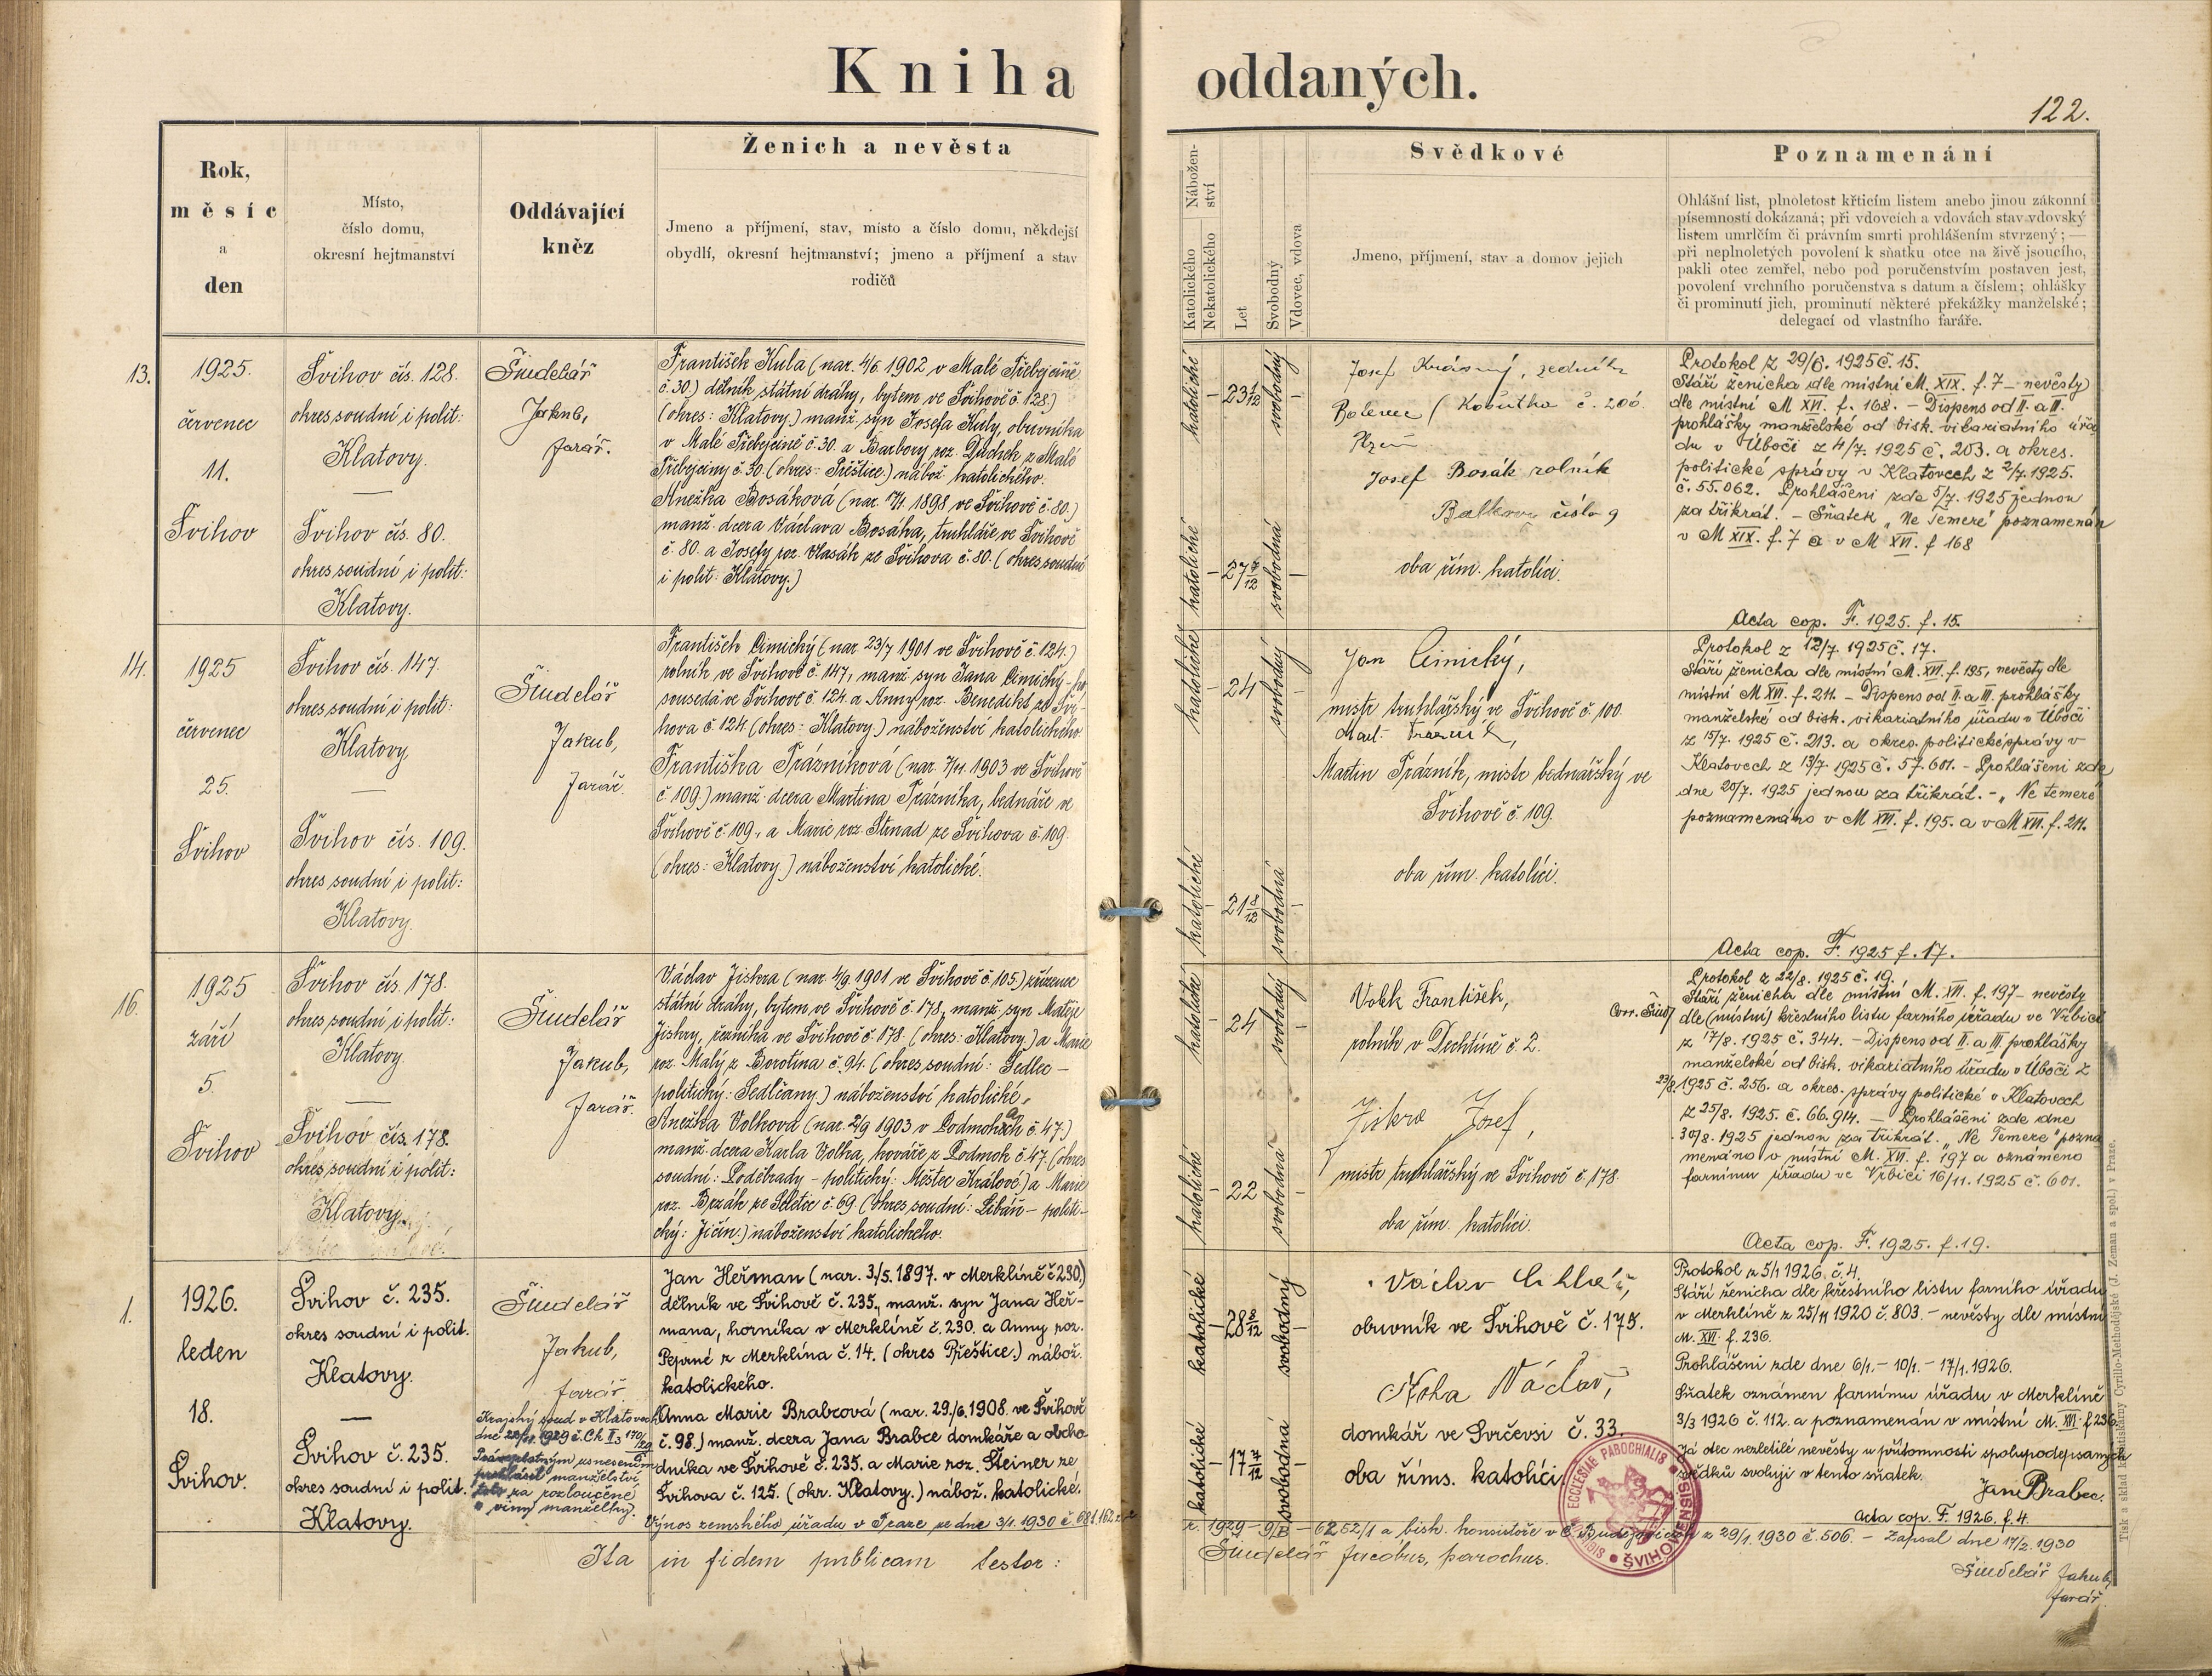 Kniha oddaných.
122.
Rok,
měsíc
a
den
Místo,
číslo domu,
okresní hejtmanství
Oddávající
kněz
Ženich a nevěsta
Jmeno a příjmení, stav, místo a číslo domu, někdejší
obydlí, okresní hejtmanství; jmeno a příjmení a stav
rodičů
Nábožen-
ství
Katolického
Nekatolického
Let
Svobodný
Vdovec, vdova
Svědkové
Jmeno, příjmení, stav a domov jejich
Poznamenání
Ohlášní list, plnoletost křticím listem anebo jinou zákonní
písemností dokázaná; při vdovcích a vdovách stav vdovský
listem umrlčím či právním smrti prohlášením stvrzený; —
při neplnoletých povolení k sňatku otce na živě jsoucího,
pakli otec zemřel, nebo pod poručenstvím postaven jest,
povolení vrchního poručenstva s datum a číslem; ohlášky
či prominutí jich, prominutí některé překážky manželské;
delegací od vlastního faráře.
13.
1925.
červenec
11.
Švihov
Švihov čís. 128.
okres soudní i polit:
Klatovy.
Švihov čís. 80.
okres soudní i polit:
Klatovy.
Šindelář
Jakub,
farář.
František Kula (nar. 4/6 1902 v Malé Třebejčině
č. 30.) dělník státní dráhy, bytem ve Švihově č. 128.)
(okres: Klatovy.) manž. syn Josefa Kuly, obuvníka
v Malé Třebejčině č. 30. a Barbory roz. Duchek z Malé
Třebejčiny č. 30. (okres: Přeštice) nábož. katolického.
Anežka Bosáková (nar. 1898 ve Švihově č. 80.)
manž. dcera Václava Bosáka, truhláře ve Švihově
č. 80. a Josefy roz. Vlasák ze Švihova č. 80. (okres soudní
i polit: Klatovy.)
katolické
23 1/12
svobodný
katolické
27
svobodná
Josef Krásný, zedník
Bolevec (Košutka č. 206.
Plzeň
Josef Bosák rolník
číslo 9
oba řím. katolíci.
Protokol z 29/6. 1925 č. 15.
Stáří ženicha dle místní M. XIX. f. 7 – nevěsty
dle místní M XVI. f. 168. – Dispens od II. a III.
prohlášky manželské od bisk. vikariatního úřa-
du v Úboči z 4/7. 1925 č. 203. a okres.
politické správy v Klatovech z 2/7. 1925.
č. 55.062. Prohlášeni zde 5/7. 1925 jednou
za třikrát. – Sňatek „Ne Temere" poznamenán
v M XIX. f. 7 a v M XVI. f 168
Acta cop. F. 1925. f. 15.
14.
1925
červenec
25.
Švihov
Švihov čís. 147.
okres soudní i polit:
Klatovy
Švihov čís. 109.
okres soudní i polit:
Klatovy.
Šindelář
Jakub,
farář.
František Cimický (nar. 23/7 1901 ve Švihově č. 124.)
rolník ve Švihově č. 147, manž. syn Jana Cimický-ho,
souseda ve Švihově č. 124. a Anny roz. Benedikt ze Švi-
hova č. 124. (okres: Klatovy.) náboženství katolického.
Františka Prázníková (nar. 1903 ve Švihově
č. 109.) manž. dcera Martina Prázníka, bednáře ve
Švihově č. 109., a Marie roz. Strnad ze Švihova č. 109.
(okres: Klatovy.) náboženství katolické.
katolické
24
svobodný
katolické
21 8/12
svobodná
Jan Cimický,
mistr truhlářský ve Švihově č. 100.
Mart. Prázník,
Martin Prázník, mistr bednářský ve
Švihově č. 109.
oba řím. katolíci.
Protokol z 12/7. 1925 č. 17.
Stáří ženicha dle místní M. XVI. f. 195, nevěsty dle
místní M XVI. f. 211. – Dispens od II a III. prohlášky
manželské od bisk. vikariatního úřadu v Úboči
z 15/7. 1925 č. 213. a okres. politické správy v
Klatovech z 13/7. 1925 č. 57.601. – Prohlášeni zde
dne 20/7. 1925 jednou za třikrát. – „Ne temere
poznamenáno v M XVI. f. 195. a v M XVI. f. 211.
Acta cop. F. 1925 f. 17.
16.
1925
září
5.
Švihov
Švihov čís. 178.
okres soudní i polit:
Klatovy.
Švihov čís. 178.
okres soudní i polit:
Klatovy.
Šindelář
Jakub,
farář.
Václav Jiskra (nar. 4/9 1901 ve Švihově č. 105) zřízenec
státní dráhy, bytem ve Švihově č. 178, manž. syn Matěje
Jiskry, řezníka ve Švihově č. 178. (okres: Klatovy.) a Marie
roz. Malý z Borotína č. 94. (okres soudní: Sedlec –
politický: Sedlčany.) náboženství katolické.
Anežka Volková (nar. 2/9 1903 v č. 47.)
manž. dcera Karla Volka, kováře z Podmok č. 47. (okres
soudní: Poděbrady – politický: Městec Králové) a Marie
roz. Bezák ze Seletic č. 69. (okres soudní: Libáň – politi-
cký: Jičín.) náboženství katolického.
katolické
24
svobodný
katolické
22
svobodná
Volek František,
rolník v Dechtíně č. 2.
Jiskra Josef,
mistr truhlářský ve Švihově č. 178.
oba řím. katolíci.
Protokol z 22/8. 1925 č. 19.
Stáří ženicha dle místní M. XVI. f. 197 – nevěsty
dle (místní) křestního listu farního úřadu ve Vrbici
z 17/8. 1925 č. 344. – Dispens od II. a III. prohlášky
manželské od bisk. vikariatního úřadu v Úboči z
23/8. 1925 č. 256. a okres. správy politické v Klatovech
z 25/8. 1925. č. 66.914. – Prohlášeni zde dne
30/8. 1925 jednou za třikrát. „Ne Temere" pozna
menáno v místní M. XVI. f. 197 a oznámeno
farnímu úřadu ve Vrbici 16/11. 1925 č. 601.
Acta cop. F. 1925. f. 19.
1.
1926.
leden
18.
Švihov.
Švihov č. 235.
okres soudní i polit.
Klatovy.
Švihov č. 235.
okres soudní i polit.
Klatovy.
Šindelář
Jakub,
farář.
Krajský soud v Klatovech
dne 1929 č. Ck II3 170/29
Právoplatným usnesením
prohlásil manželství
toto za rozloučené
viny manželky.
Jan Heřman (nar. 3/5. 1897. v Merklíně č 230.)
dělník ve Švihově č. 235., manž. syn Jana Heř-
mana, horníka v Merklíně č. 230. a Anny roz.
Peprné z Merklína č. 14. (okres Přeštice.) nábož.
katolického.
Anna Marie Brabcová (nar. 29./6. 1908. ve Švihově
č. 98.) manž. dcera Jana Brabce domkáře a obcho-
dníka ve Švihově č. 235. a Marie roz. Šteiner ze
Švihova č. 125. (okr. Klatovy.) nábož. katolické.
katolické
28 8/12
svobodný
katolické
17 7/12
svobodná
Václav Cihlář,
obuvník ve Švihově č. 175.
Václav,
domkář ve Svrčevsi č. 33.
oba říms. katolíci
Protokol z 5/1 1926. č. 4.
Stáří ženicha dle křestního listu farního úřadu
v Merklíně z 25/11 1920 č. 803. – nevěsty dle místní
M. XVI. f. 236.
Prohlášeni zde dne 6/1. – 10/1. – 17/1. 1926.
Sňatek oznámen farnímu úřadu v Merklíně
3/3 1926 č. 112. a poznamenán v místní M. XVI. f 236.
Já otec nezletilé nevěsty v přítomnosti spolupodepsaných
svědků svoluji v tento sňatek.
Jan Brabec.
Acta cop. F. 1926. f. 4.
Výnos zemského úřadu v Praze ze dne 3/1. 1930 č 681.162 z r. 1929 – 9/B – 6252/1 a bisk. konsistoře v Č. Budějovicích z 29/1. 1930 č. 506. – Zapsal dne 17/2. 1930
Šindelář Jakub,
farář.
Ita in fidem publicam testor: Šindelář Jacobus, parochus.
SIGILLUM ECCLESIAE PAROCHIALIS ŠVIHOVENSIS
Tisk a sklad knihtiskárny Cyrillo-Methodějské (J. Zeman a spol.) v Praze.